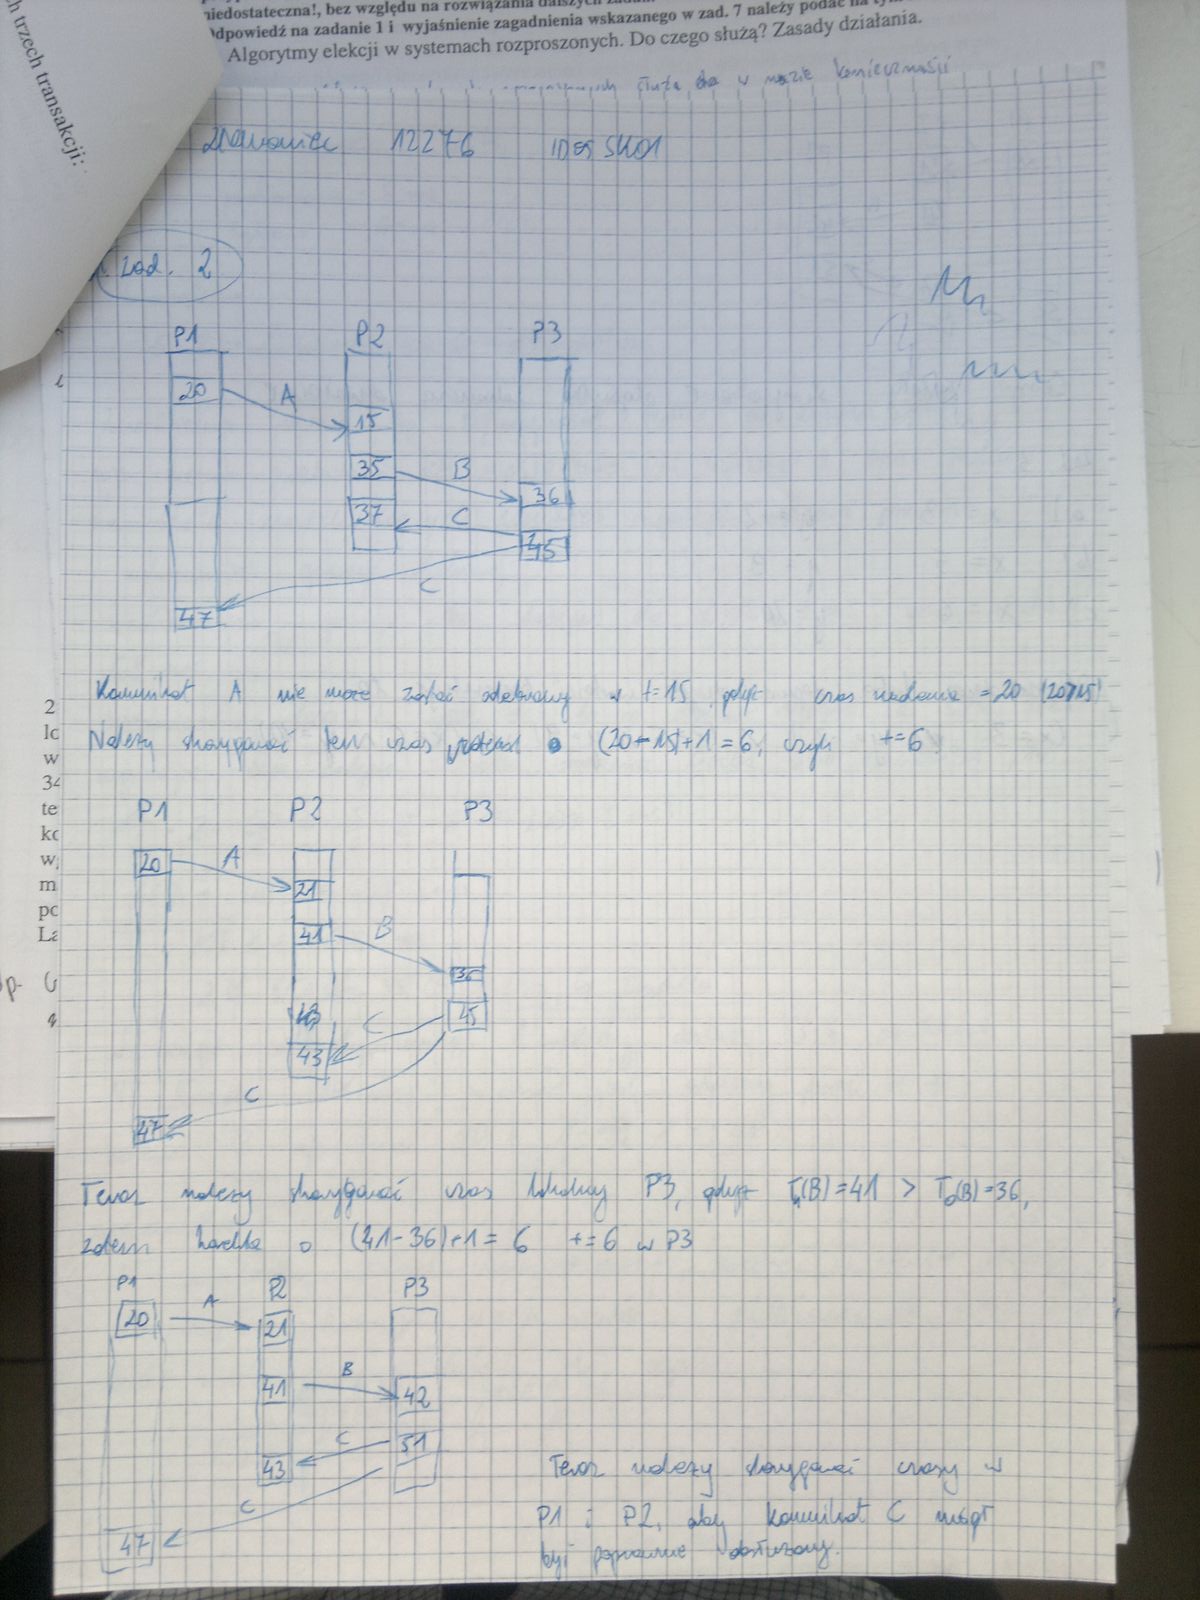 ch trzech transakcji:
niedostateczna!, bez względu na rozwiązania dalszych
Odpowiedź na zadanie 1 i wyjaśnienie zagadnienia wskazanego w zad. 7 należy podać na
Algorytmy elekcji w systemach rozproszonych. Do czego służą? Zasady działania.
służą do w razie konieczności
12276
zad. 2
P1 P2 P3
20 A
15
35 B
36
37 C
45
C
47
Komunikat A nie może zostać odebrany w t=15, gdyż czas nadania =20 (20>15)
Należy skorygować ten czas o (20-15)+1=6, czyli +=6
P1 P2 P3
20 A
21
41 B
36
45
C
43
C
47
Teraz należy skorygować czas lokalny P3, gdyż (B)=41 > (B)=36,
zatem o (41-36)+1= 6 +=6 w P3
P1 P2 P3
20 A
21
41 B 42
C 51
43
C
47
Teraz należy skorygować czasy w
P1 i P2, aby komunikat C mógł
być poprawnie